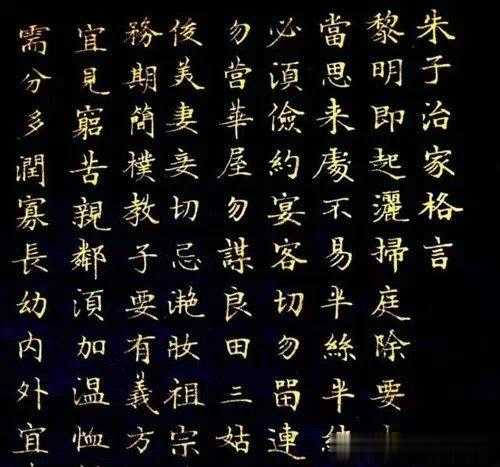 朱子治家格言
黎明即起灑掃庭除要
當思来處不易半絲半
必須儉約宴客切勿畱連
勿營華屋勿謀良田三姑
俊美妻妾切忌滟妝祖宗
務期簡樸教子要有義方
宜見窮苦親鄰須加温恤
需分多潤寡長幼内外宜